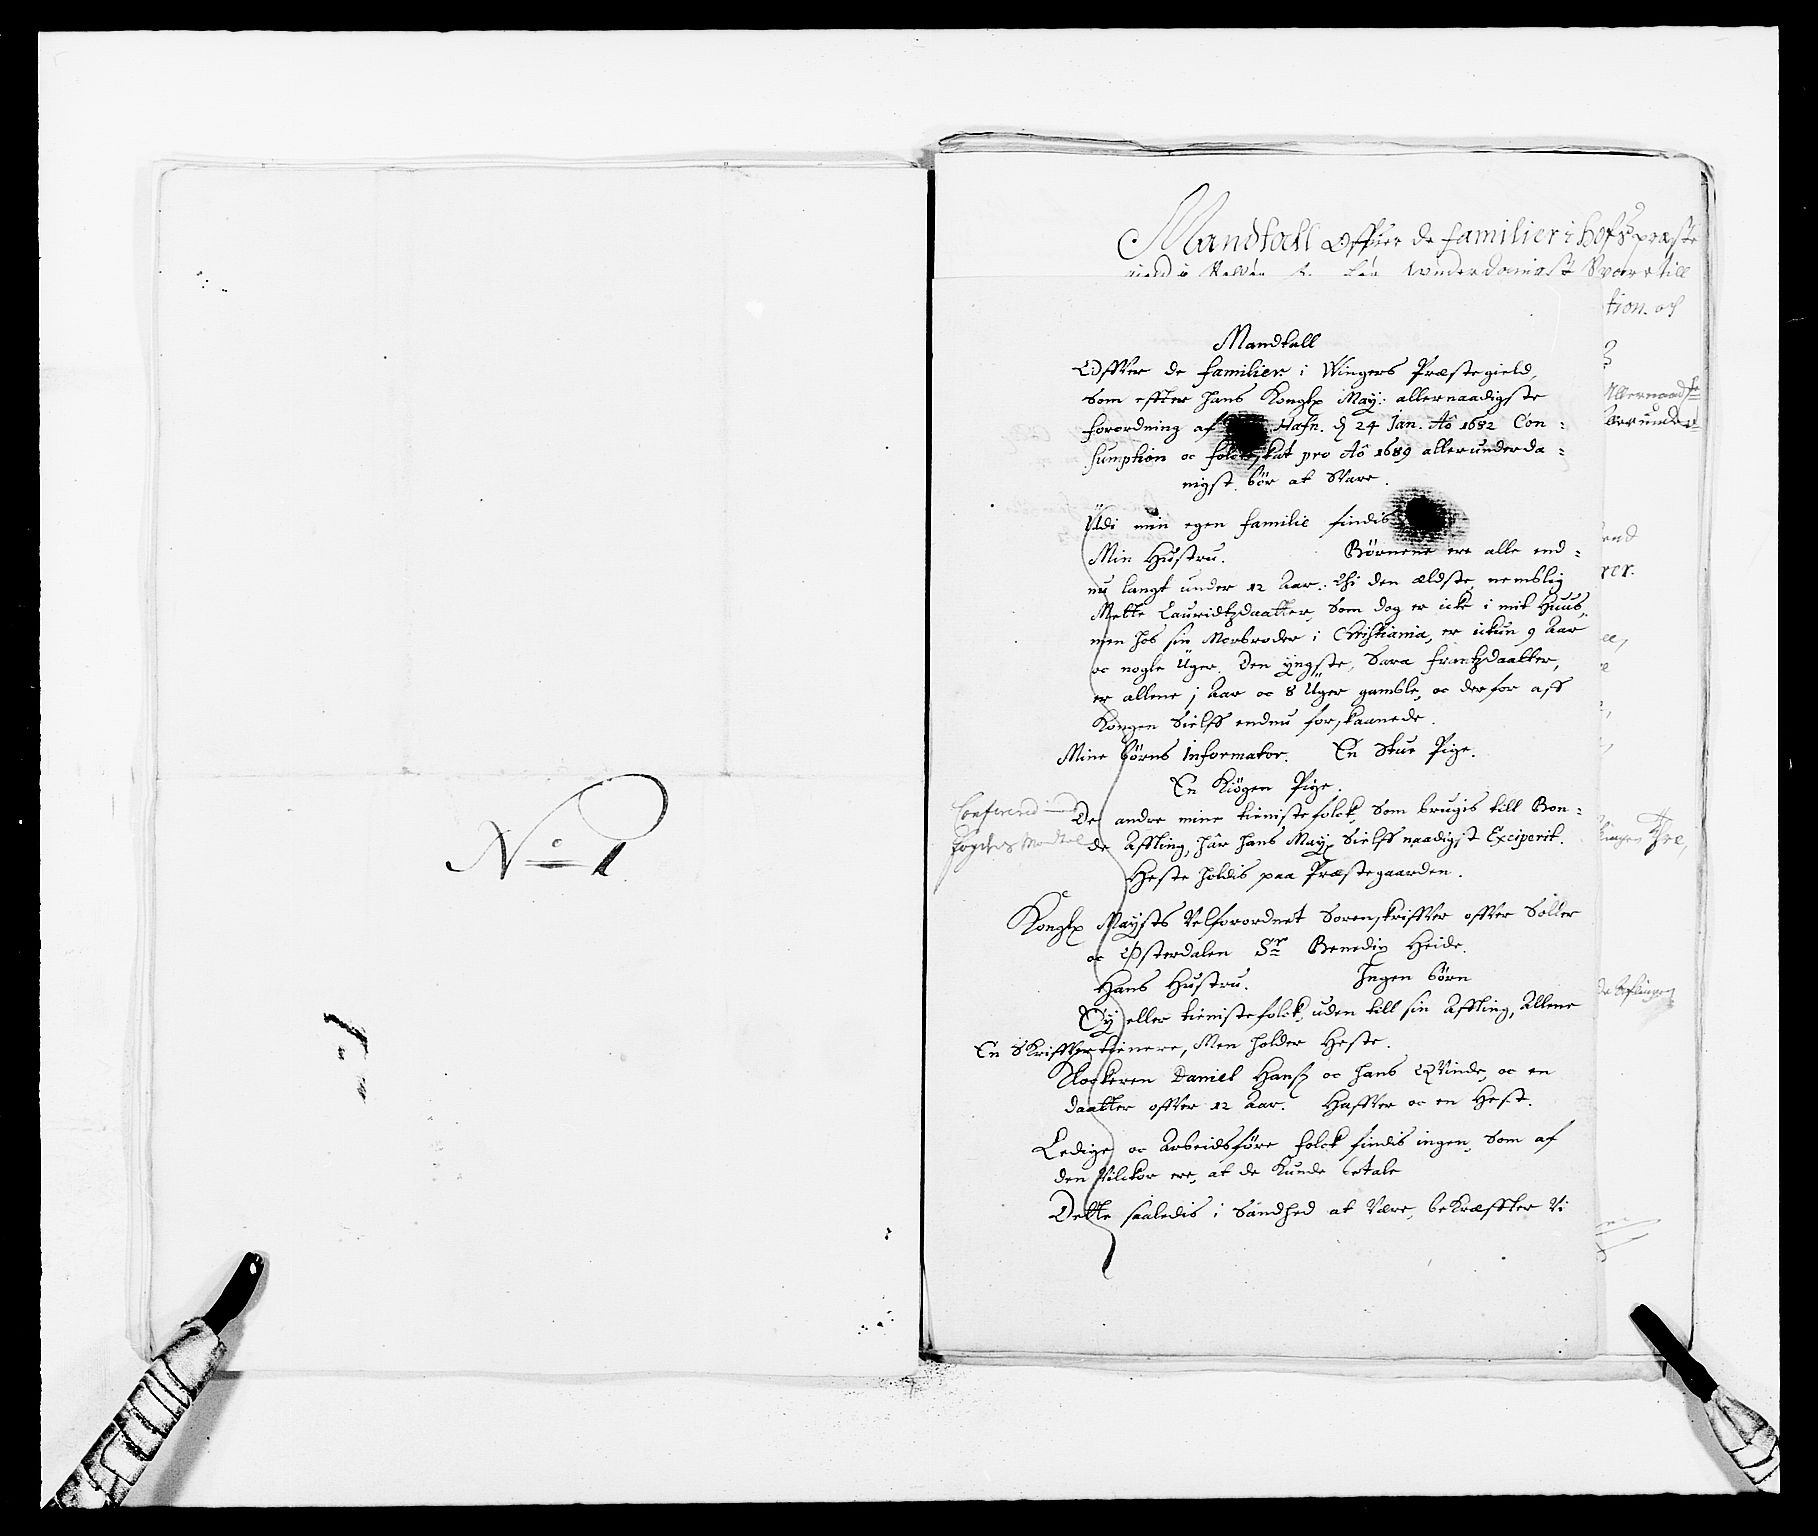 No 1
Mandtall Offuer de familier i Hofs præste
underdanigst Svare till
tion. och
Mandtall
Offver de familier i Wingers Præstegield,
Som effter Hans Kongl. May: allernaadigste
forordning af Hafn. d 24 Jan. Ao 1682 Con=
sumption oc folckeskat pro Ao 1689 allerunderda=
nigst bör at Svare.
Udi min egen familie findis
Min Hustru. Börnene ere alle end=
nu langt under 12 Aar: Thi den ældste, nemlig
Mette Lauridtzdaatter, Som dog er icke i mit Huus,
men hos sin Morbroder i Christiania, er ickun 9 Aar
oc nogle Uger. Den yngste, Sara Frantzdaatter,
er allene j Aar oc 8 Uger gamble, oc derfor aff
Kongen Sielff endnu forskaanede.
Mine börns Informator. En Stue Pige.
En Kiögen Pige.
De andre mine tienistefolck, Som brugis till Bon=
de Affling, hår hans May. Sielff naadigst Exciperit.
Heste holdis paa Præstegaarden.
Kongl. Maysts Velforordnet Sorenskriffver offver Sollöer
oc Østerdalen Sr Benedix Heide.
Hans Hustru. Ingen börn
Ey eller tienistefolck, uden till sin Affling, Allene
En Skriffvertienere, Men holder Heste.
Klockeren Daniel Hanss oc hans Qvinde, oc en
daatter offver 12 Aar. Haffver oc en Hest.
Ledige oc Arbeidsföre folck findis ingen, Som af
den Vilckor ere, at de Kunde betale
Dette saaledis i Sandhed at Være, bekræffter Vi